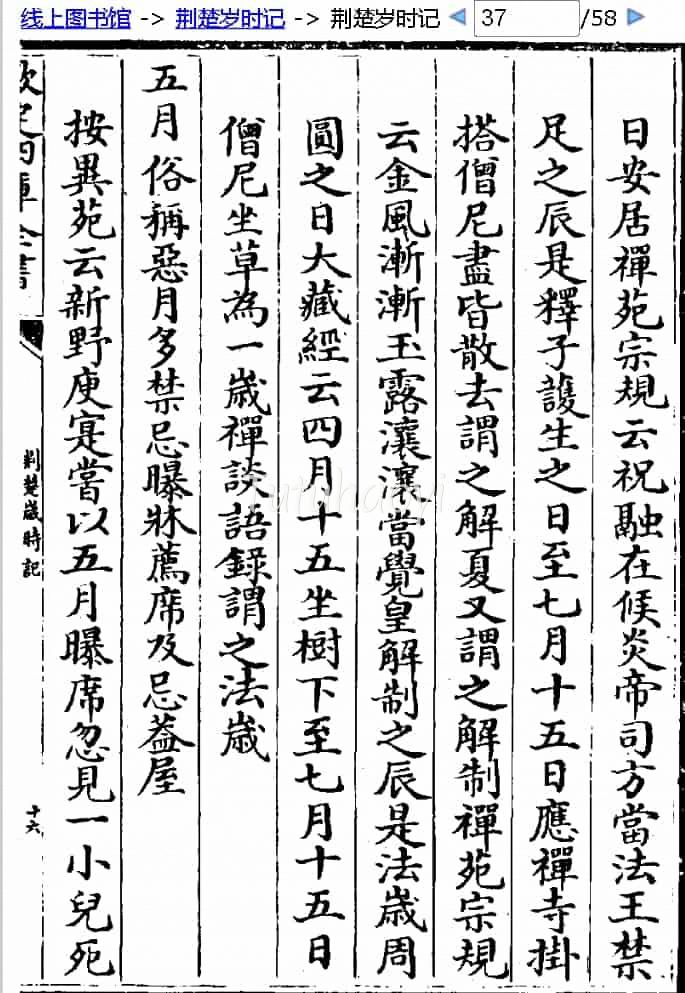 线上图书馆 -> 荆楚岁时记 -> 荆楚岁时记 37 /58
日安居禪苑宗規云祝融在候炎帝司方當法王禁
足之辰是釋子護生之日至七月十五日應禪寺掛
搭僧尼盡皆散去謂之解夏又謂之解制禪苑宗規
云金風漸漸玉露瀼瀼當覺皇解制之辰是法歲周
圓之日大藏經云四月十五坐樹下至七月十五日
僧尼坐草為一歲禪談語錄謂之法歲
五月俗稱惡月多禁忌曝牀薦席及忌蓋屋
按異苑云新野庾寔嘗以五月曝席忽見一小兒死
欽定四庫全書
荆楚歲時記
十六